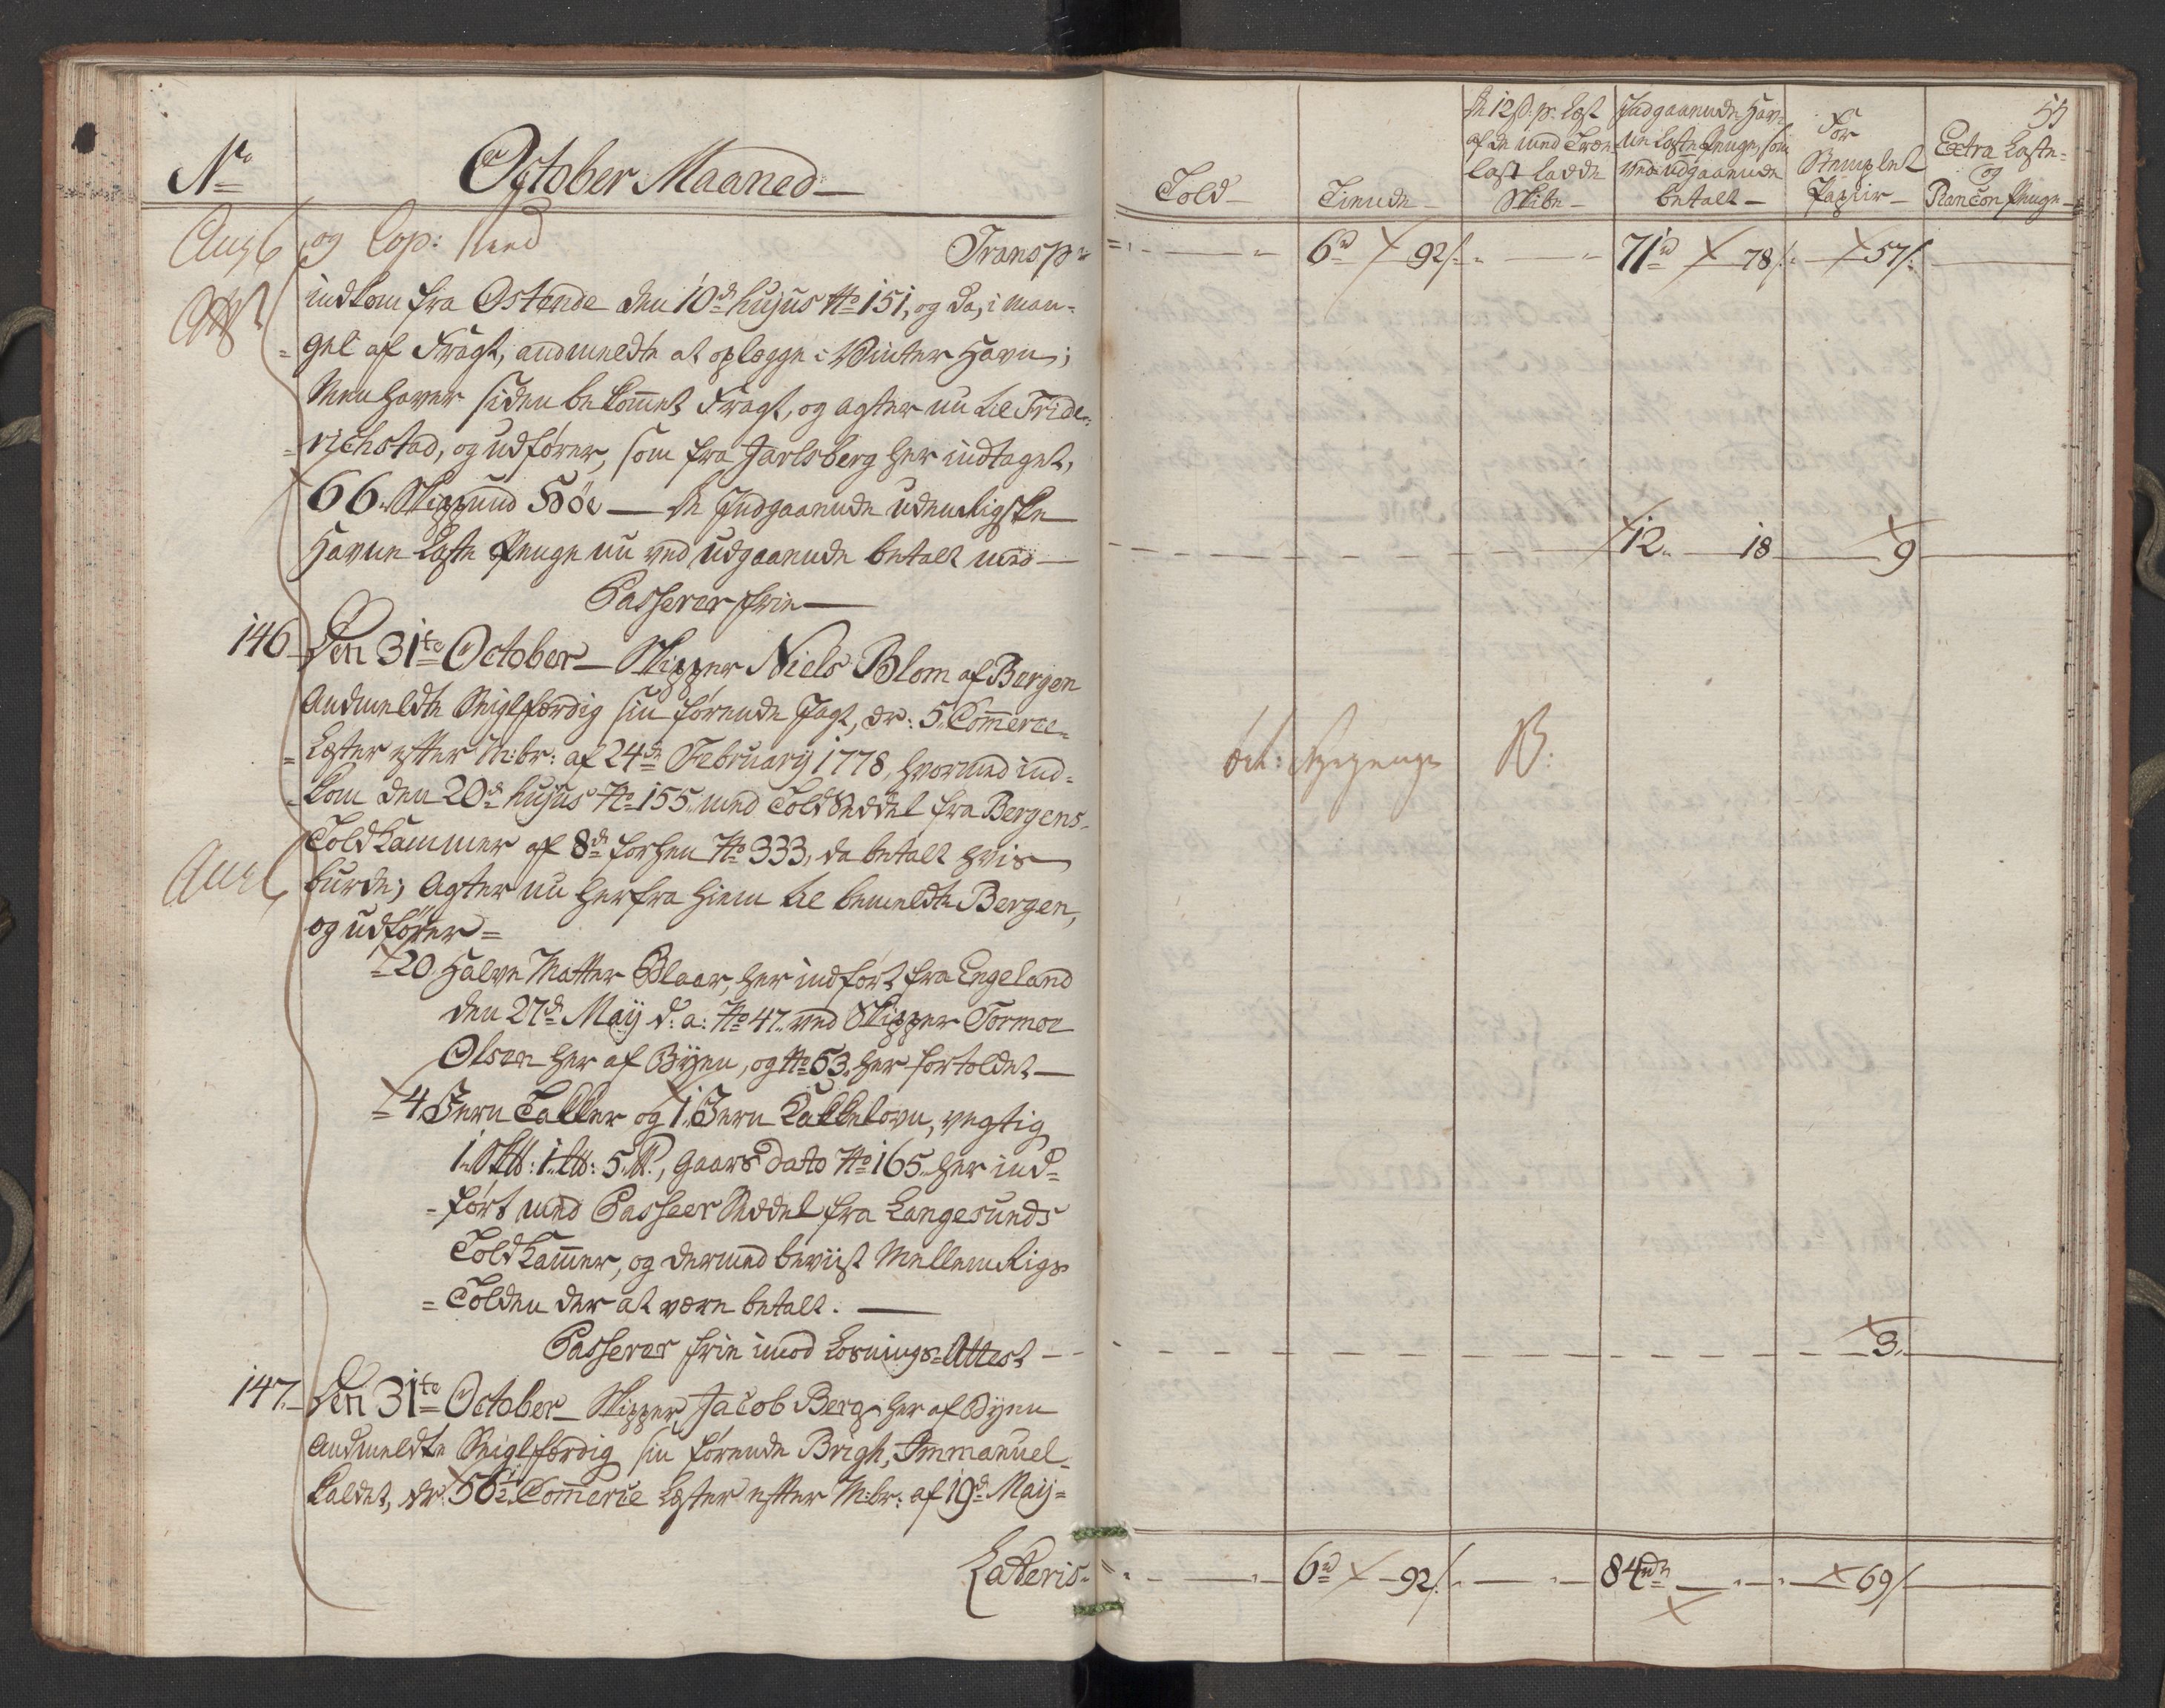 No
October Maaned
Transp:
indkom fra Ostende den 10de hujus No 151, og da, i man-
= gel af Fragt, andmeldte at oplegge i Vinter Havn;
Men haver siden bekommet Fragt, og agter nu til Fride-
= richstad, og udfører, som fra Jarlsberg her indtaget,
66 Skippund Höe — De Indgaaende udenrigske
Havne Laste Penge nu ved udgaaende betalt med —
Passerer frie —
146 Den 31te October — Skipper Niels Blom af Bergen
Andmeldte Seiglfærdig sin førende Jagt, dr: 5 Commerce-
= Lester efter M:br: af 24de February 1778, hvormed ind-
= kom den 20de hujus No 155 med Told Seddel fra Bergens
Told Kammer af 8de forhen No 333, da betalt hvis
burde; Agter nu herfra hiem til bemeldte Bergen,
og udfører =
= 20 Halve Matter Blaar, her indført fra Engeland
den 27de Maij d: a: No 47 ved Skipper Tormoe
Olsen her af Byen, og No 53 her fortoldet —
= 4 Jern Takker og 1 Jern Kakkelovn, vegtig
1 Sk℔: 1 L℔: 5 ℔, gaars Dato No 165 her ind-
= ført med Passeer Seddel fra Langesunds
Told Kammer, og dermed beviist Mellemrigs
= Tolden der at være betalt. —
Passerer frie imod Losnings-Attest —
147 Den 31te October — Skipper Jacob Berg her af Byen
Andmeldte Seiglfærdig sin førende Brigh, Immanuel
kaldet, dr: 56½ Commerce Lester efter M:br: af 19de Maij =
Lateris
55
Told
Tiende
De 12 s. pr. Lest
af de med Træe
last ladde
Skibe
Indgaaende Hav-
ne Laste Penge, som
ved udgaaende
betalt
For
Stemplet
Papiir
Extra Laste-
og
Rancon Penge
6 rd 92 s. 71 rd 78 s. 57 s.
12 18 9
3
6 rd 92 s. 84 rd 69 s.